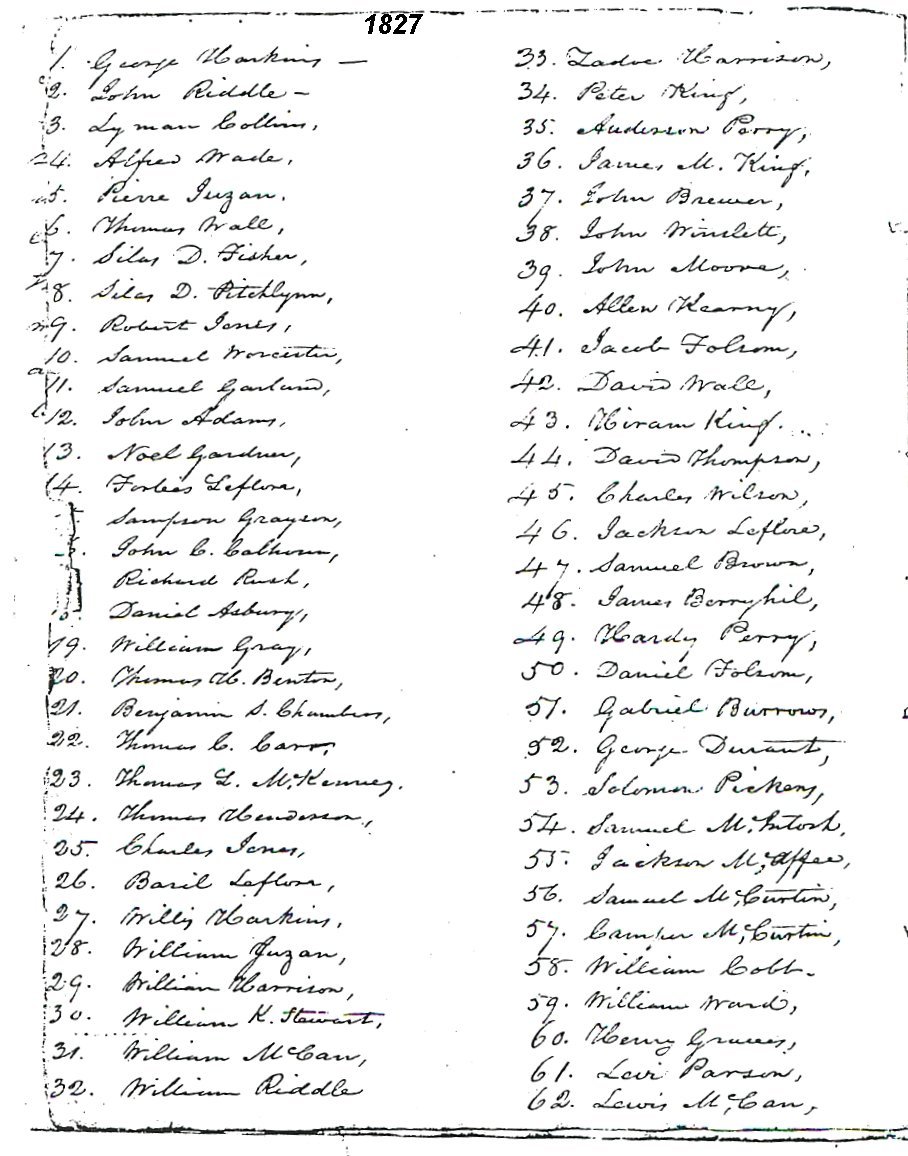 1827
1. George Harkins —
2. John Riddle –
3. Lyman Collins,
4. Alfred Wade,
5. Pierre Juzan.
6. Thomas Wall,
7. Silas D. Fisher,
8. Silas D. Pitchlynn,
9. Robert Jones,
10. Samuel Worcester,
11. Samuel Garland,
12. John Adams,
13. Noel Gardner,
14. Forbes Leflore,
Sampson Grayson,
John C. Calhoun,
Richard Rush,
Daniel Asbury,
19. William Gray,
20. Thomas H. Benton,
21. Benjamin S. Chambers,
22. Thomas C. Carr,
23. Thomas L. McKenney.
24. Thomas Henderson,
25. Charles Jones,
26. Basil Leflore,
27. Willis Harkins,
28. William Juzan,
29. William Harrison,
30. William K. Stewart,
31. William McCan,
32. William Riddle
33. Zadoc Harrison,
34. Peter King,
35. Anderson Perry,
36. James M. King,
37. John Brewer,
38. John Winslett,
39. John Moore,
40. Allen Kearny,
41. Jacob Folsom,
42. David Wall,
43. Hiram King.
44. David Thompson,
45. Charles Wilson,
46. Jackson Leflore,
47. Samuel Brown,
48. James Berryhil,
49. Hardy Perry,
50. Daniel Folsom,
51. Gabriel Burrows,
52. George Durant,
53. Solomon Pickens,
54. Samuel McIntosh,
55. Jackson McAffee,
56. Samuel McCurtin,
57. Camper McCurtin,
58. William Cobb.
59. William Ward,
60. Henry Graves,
61. Levi Parson,
62. Lewis McCan,